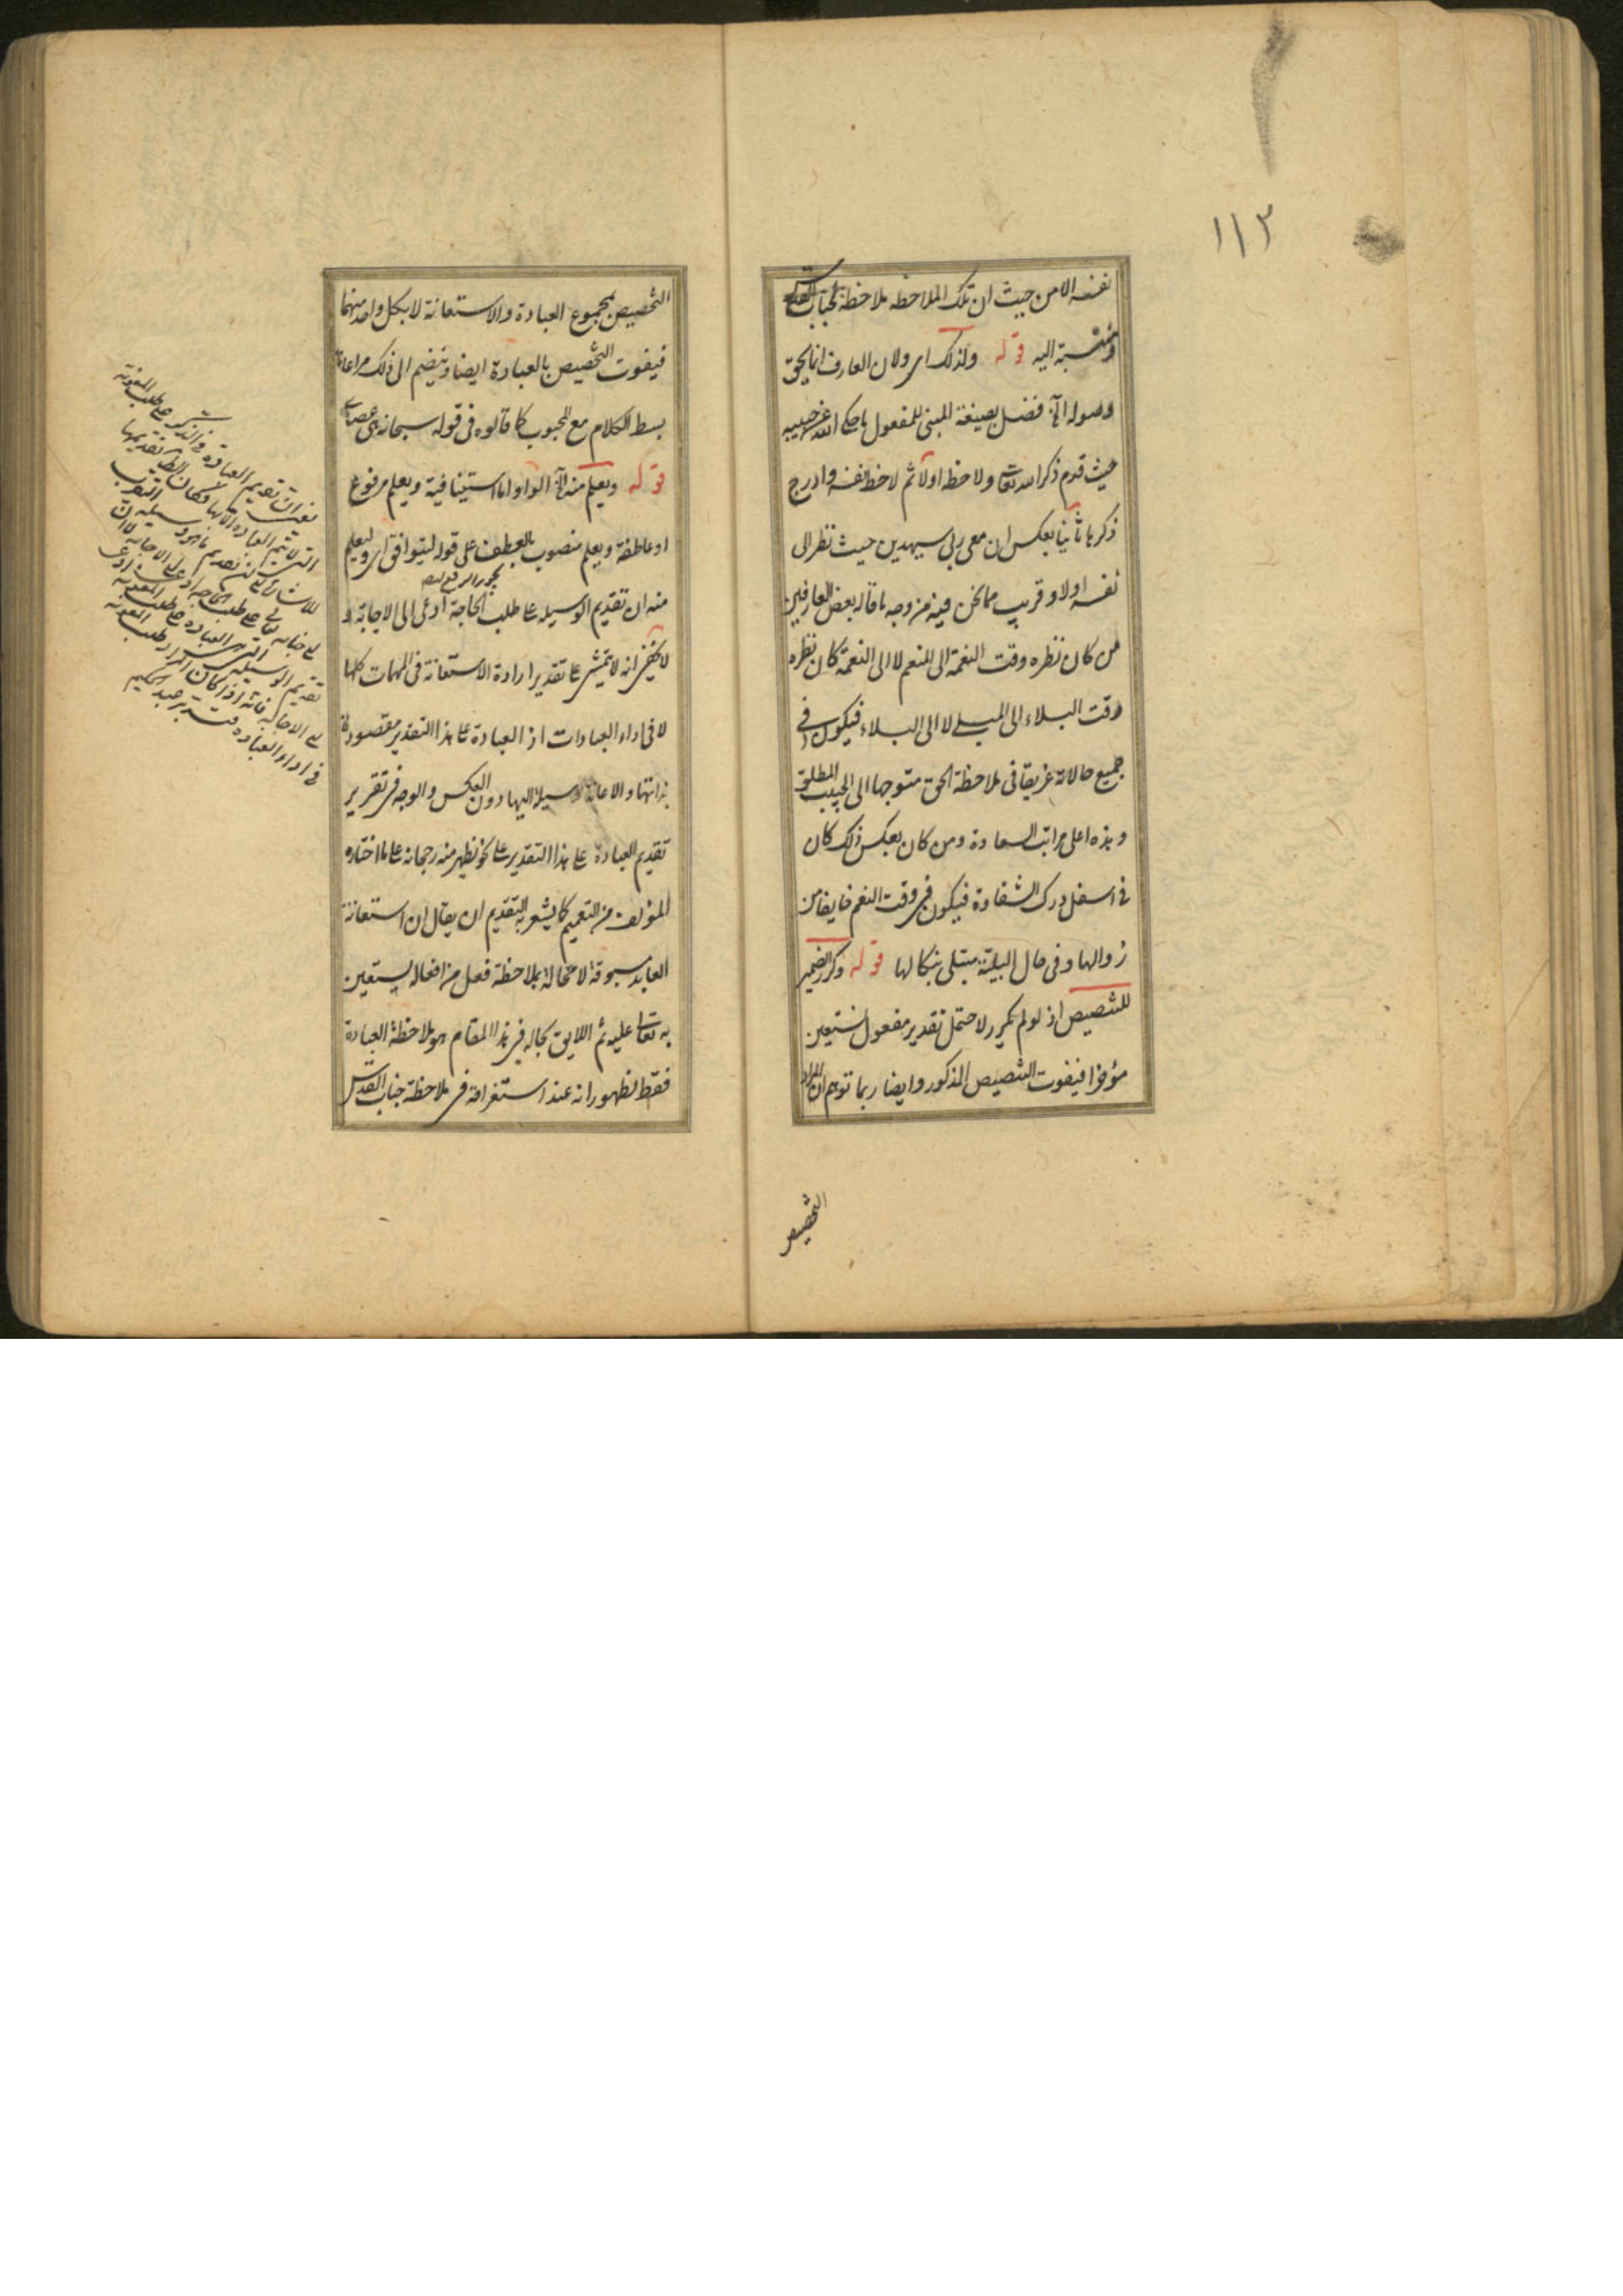 ١١٣
نفسه الا من حيث ان تلك الملاحظه ملاحظة لجناب القدس
ومنتسبة اليه قوله ولذلك اى ولان العارف انما يحق
وصوله الخ فضل بصيغة المبنى للمفعول ما حكى الله عن حبيبه
حيث قدم ذكر الله تعالى ولاحظه اولا ثم لاحظ نفسه وادرج
ذكرها ثانيا بعكس ان معى ربى سيهدين حيث نظر الى
نفسه اولا وقريب مما نحن فيه من وجه ما قاله بعض العارفين
من كان نظره وقت النعمة الى المنعم لا الى النعمة كان نظره
وقت البلاء الى المبلى لا الى البلاء فيكون فى
جميع حالاته غريقا فى ملاحظة الحق متوجها الى الحبيب المطلق
وهذه اعلى مراتب السعادة ومن كان بعكس ذلك كان
فى اسفل درك الشقاوة فيكون فى وقت النعم خايفا من
زوالها وفى حال البلية مبتلى بنكالها قوله وكرر الضمير
للتنصيص اذ لو لم يكرر لاحتمل تقدير مفعول نستعين
مؤخرا فيفوت التنصيص المذكور وايضا ربما توهم ان المراد
التخصيص
التخصيص بمجموع العبادة والاستعانة لا بكل واحد منهما
فيفوت التخصيص بالعبادة ايضا وينضم الى ذلك مراعاة
بسط الكلام مع المحبوب كما قالوه فى قوله سبحانه هى عصاى
قوله ويعلم منه الخ الواو اما استينافية ويعلم مرفوع
او عاطفة ويعلم منصوب بالعطف على قوله ليتوافق اى وليعلم
منه ان تقديم الوسيله على طلب الحاجة ادعى الى الاجابة
لا يخفى انه لا يتمشى على تقدير ارادة الاستعانة فى المهمات كلها
لا فى اداء العبادات اذ العبادة على هذا التقدير مقصودة
بذاتها والاعانة وسيلة اليها دون العكس والوجه فى تقرير
تقديم العبادة على هذا التقدير على نحو يظهر منه رجحانه على ما اختاره
المؤلف من التعميم كما يشعر به التقديم ان يقال ان استعانة
العابد مسبوقة لا محالة بملاحظة فعل من افعاله يستعين
به تعالى عليه ثم اللايق بحاله فى هذا المقام هو ملاحظة العبادة
فقط لظهور انه عند استغراقه فى ملاحظة جناب القدس